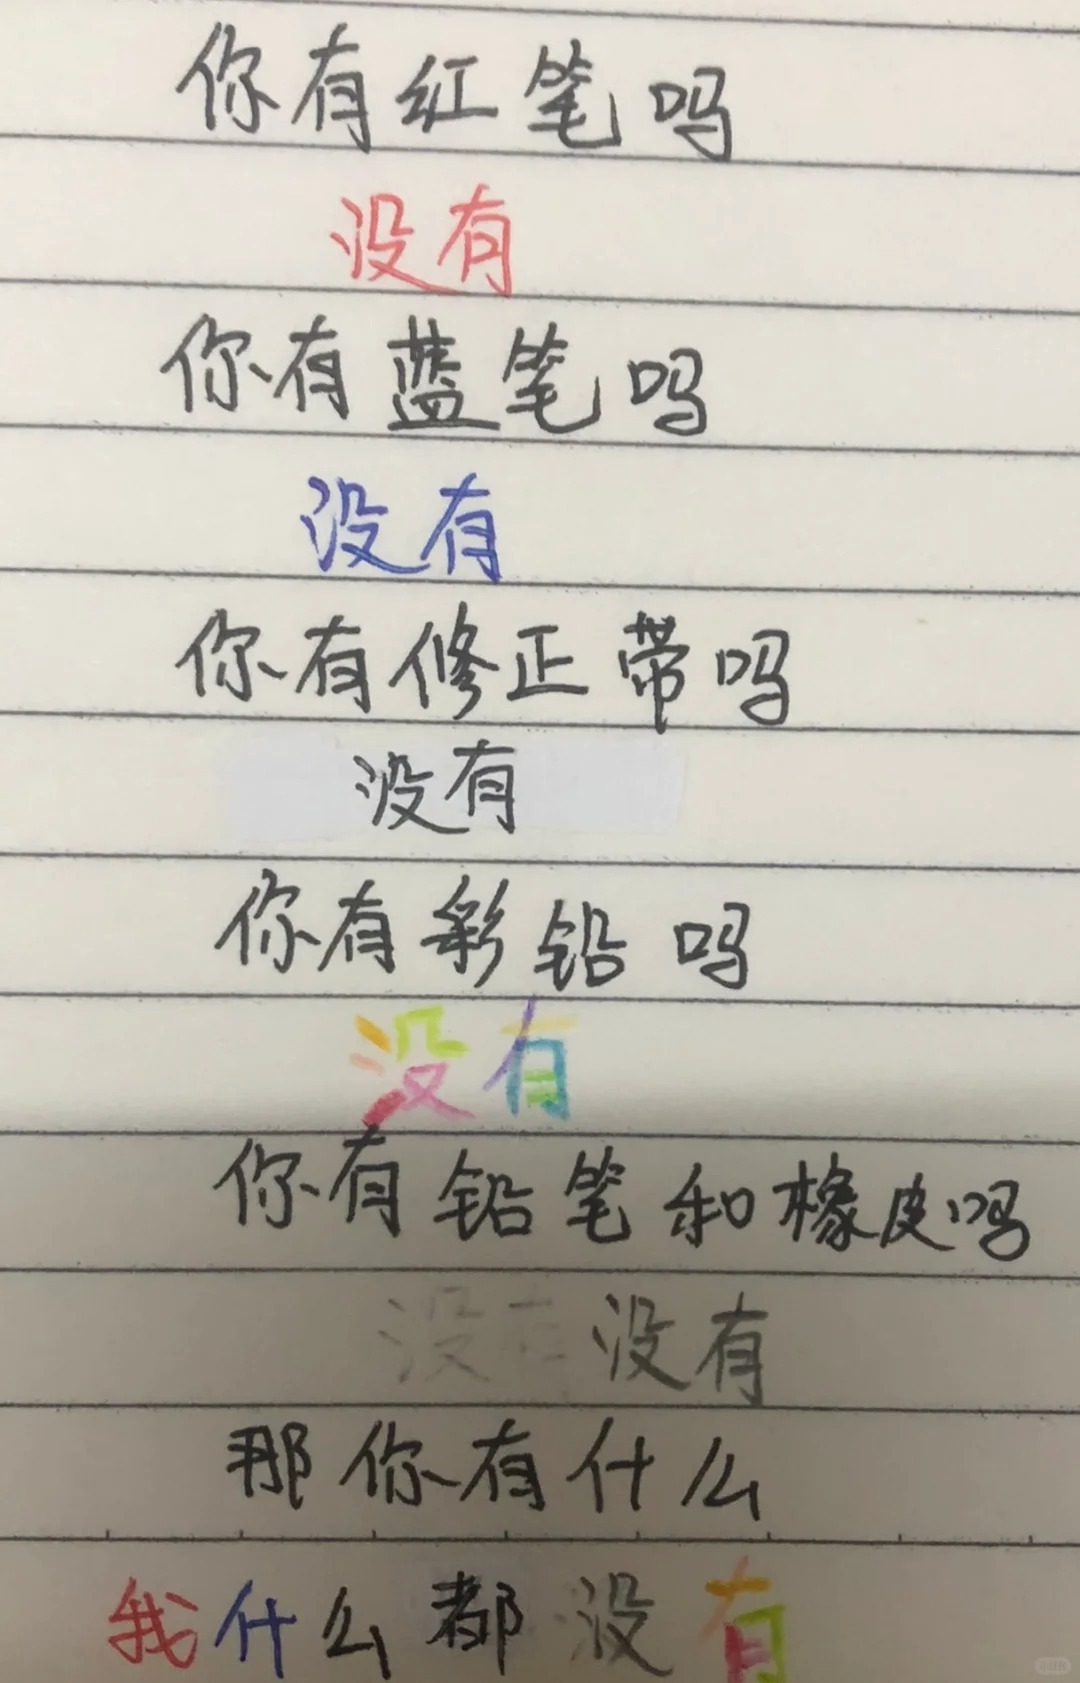 你有红笔吗
没有
你有蓝笔吗
没有
你有修正带吗
没有
你有彩铅吗
没有
你有铅笔和橡皮吗
没有 没有
那你有什么
我什么都没有